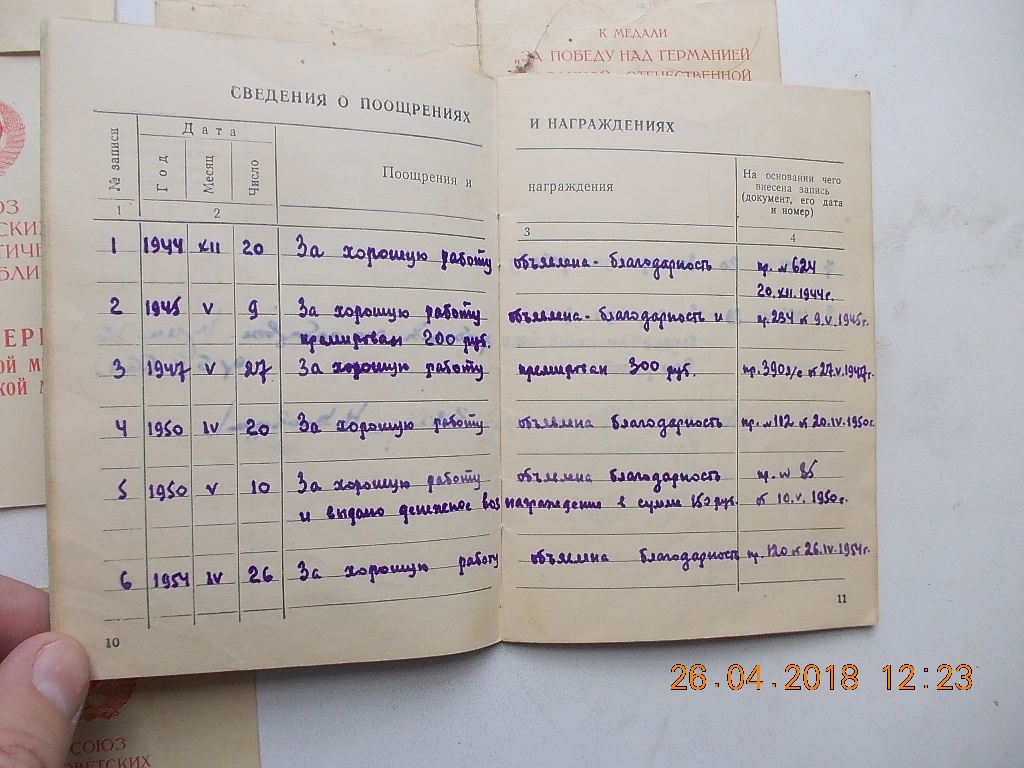 К МЕДАЛИ
„ЗА ПОБЕДУ НАД ГЕРМАНИЕЙ
ОТЕЧЕСТВЕННОЙ
СВЕДЕНИЯ О ПООЩРЕНИЯХ
И НАГРАЖДЕНИЯХ
№ записи
Дата
Год
Месяц
Число
Поощрения и
награждения
На основании чего
внесена запись
(документ, его дата
и номер)
1 2 3 4
1 1944 XII 20 За хорошую работу объявлена благодарность пр. № 624
20.XII.1944г.
2 1945 V 9 За хорошую работу объявлена благодарность и пр. 234 от 9.V.1945г.
премирован 200 руб.
3 1947 V 27 За хорошую работу премирован 300 руб. пр. 390 л/с от 27.V.1947г.
4 1950 IV 20 За хорошую работу объявлена благодарность пр. № 112 от 20.IV.1950г.
5 1950 V 10 За хорошую работу объявлена благодарность пр. №
и выдано денежное вознаграждение в сумме 150 руб. от 10.V.1950г.
6 1954 IV 26 За хорошую работу объявлена благодарность пр. 120 от 26.IV.1954г.
10
11
СОЮЗ
ОВЕТСКИХ
26.04.2018 12:23